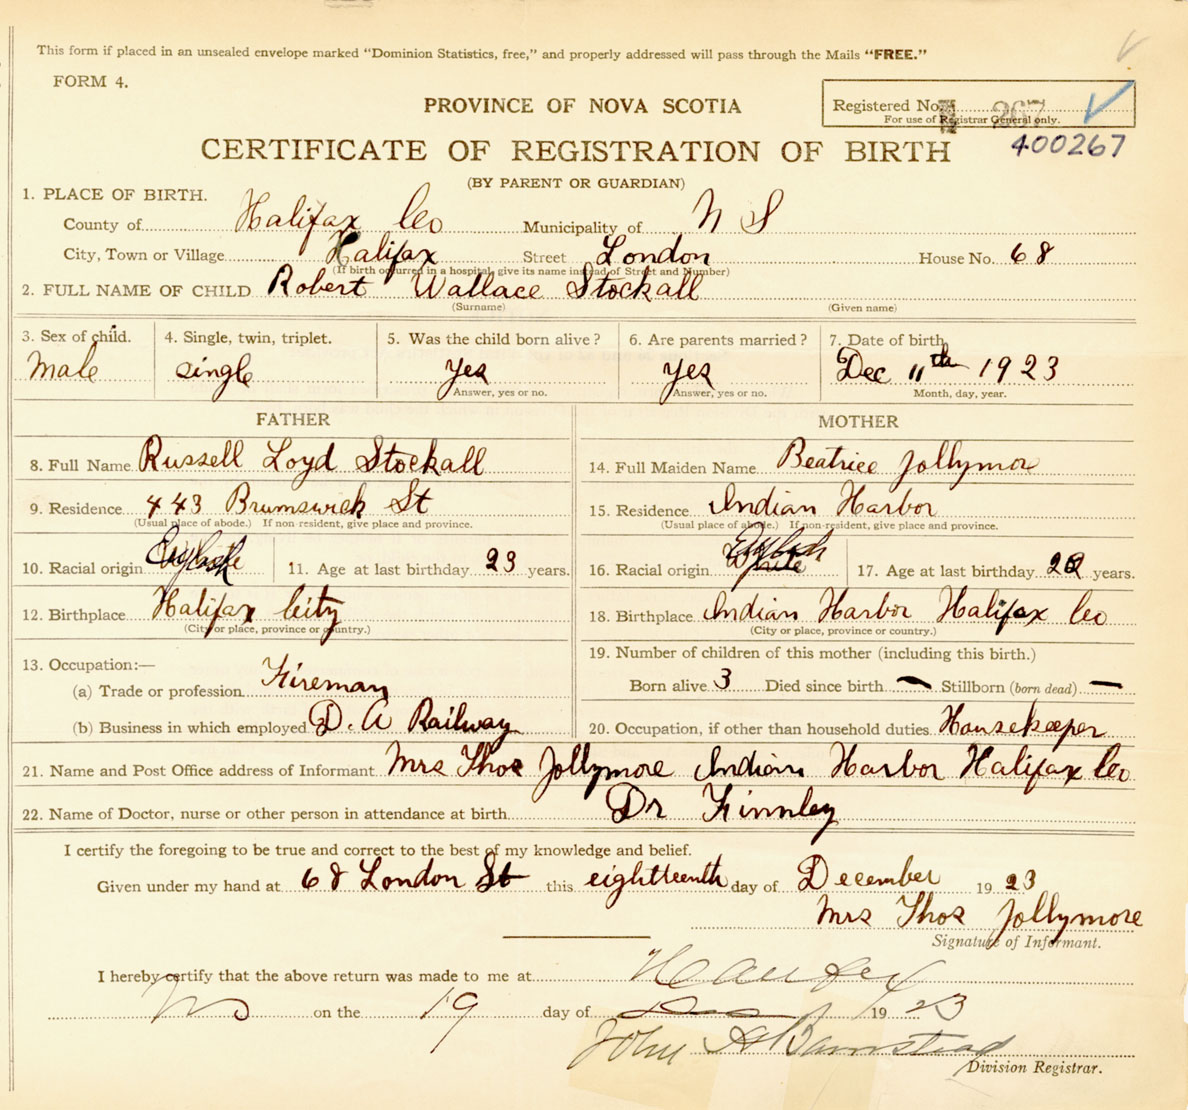 This form if placed in an unsealed envelope marked "Dominion Statistics, free," and properly addressed will pass through the Mails "FREE."
FORM 4.
PROVINCE OF NOVA SCOTIA
Registered No. 267
For use of Registrar General only.
400267
CERTIFICATE OF REGISTRATION OF BIRTH
(BY PARENT OR GUARDIAN)
1. PLACE OF BIRTH.
County of Halifax Co Municipality of N S
City, Town or Village Halifax Street London House No. 68
(If birth occurred in a hospital, give its name instead of Street and Number)
2. FULL NAME OF CHILD Robert Wallace Stockall
(Surname) (Given name)
3. Sex of child. 4. Single, twin, triplet. 5. Was the child born alive? 6. Are parents married? 7. Date of birth
Male single Yes Yes Dec 11th 1923
Answer, yes or no. Answer, yes or no. Month, day, year.
FATHER MOTHER
8. Full Name Russell Loyd Stockall 14. Full Maiden Name Beatrice Jollymore
9. Residence 443 Brunswick St 15. Residence Indian Harbor
(Usual place of abode.) If non-resident, give place and province. (Usual place of abode.) If non-resident, give place and province.
10. Racial origin English 11. Age at last birthday 23 years. 16. Racial origin English White 17. Age at last birthday 22 years.
12. Birthplace Halifax City 18. Birthplace Indian Harbor Halifax Co
(City or place, province or country.) (City or place, province or country.)
13. Occupation:— 19. Number of children of this mother (including this birth.)
(a) Trade or profession Fireman Born alive 3 Died since birth — Stillborn (born dead) —
(b) Business in which employed D. A Railway 20. Occupation, if other than household duties Housekeeper
21. Name and Post Office address of Informant Mrs Thos Jollymore Indian Harbor Halifax Co
22. Name of Doctor, nurse or other person in attendance at birth Dr Finnley
I certify the foregoing to be true and correct to the best of my knowledge and belief.
Given under my hand at 68 London St this eighteenth day of December 1923
Mrs Thos Jollymore
Signature of Informant.
I hereby certify that the above return was made to me at Halifax
NS on the 19 day of Dec 1923
John A Barnstead
Division Registrar.